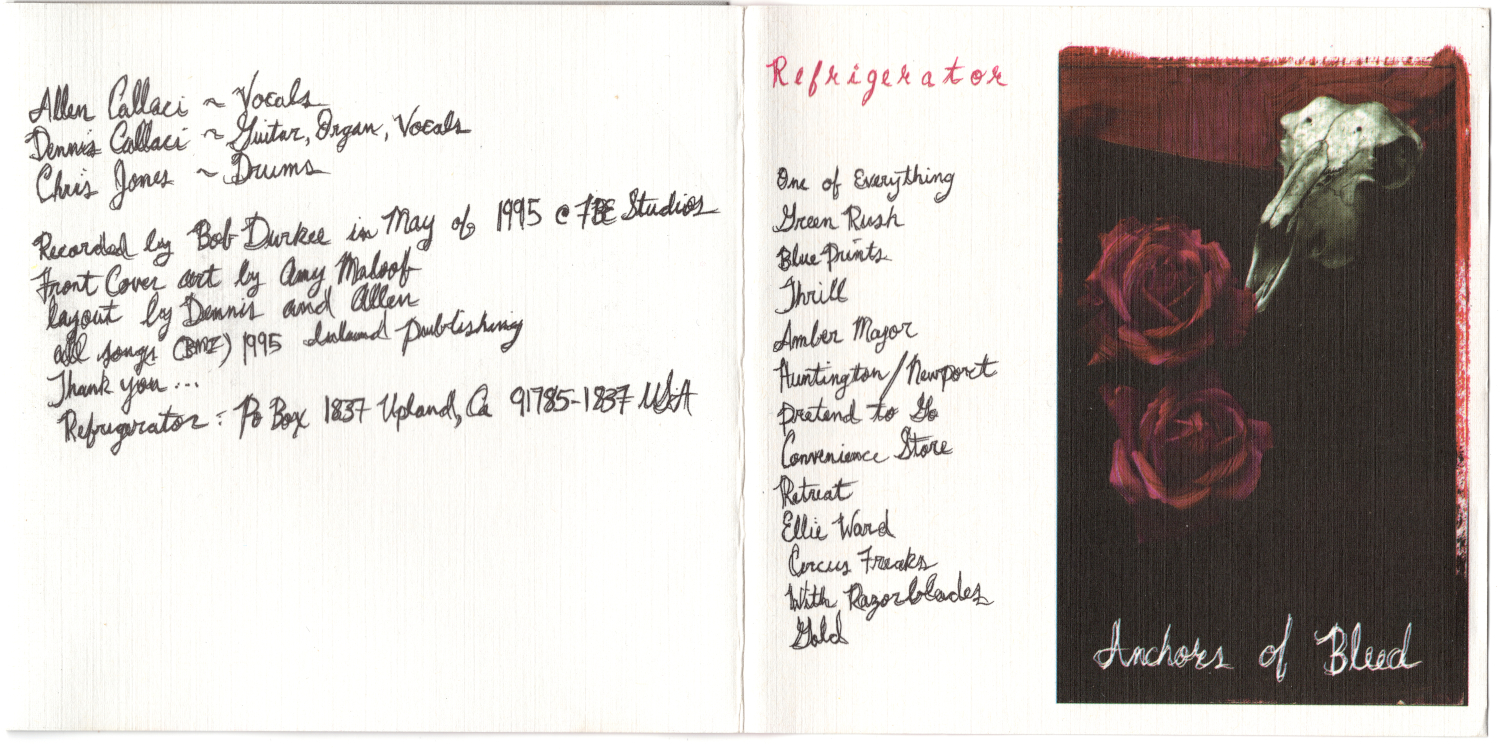 Allen Callaci ~ Vocals
Dennis Callaci ~ Guitar, Organ, Vocals
Chris Jones ~ Drums
Recorded by Bob Durkee in May of 1995 @ FBE Studios
Front Cover art by Amy Maloof
layout by Dennis and Allen
all songs (BMI) 1995 Inland publishing
Thank you ...
Refrigerator : Po Box 1837 Upland, Ca 91785-1837 USA
Refrigerator
One of Everything
Green Rush
Blue Prints
Thrill
Amber Major
Huntington/Newport
Pretend to Go
Convenience Store
Retreat
Ellie Ward
Circus Freaks
With Razorblades
Gold
Anchors of Bleed